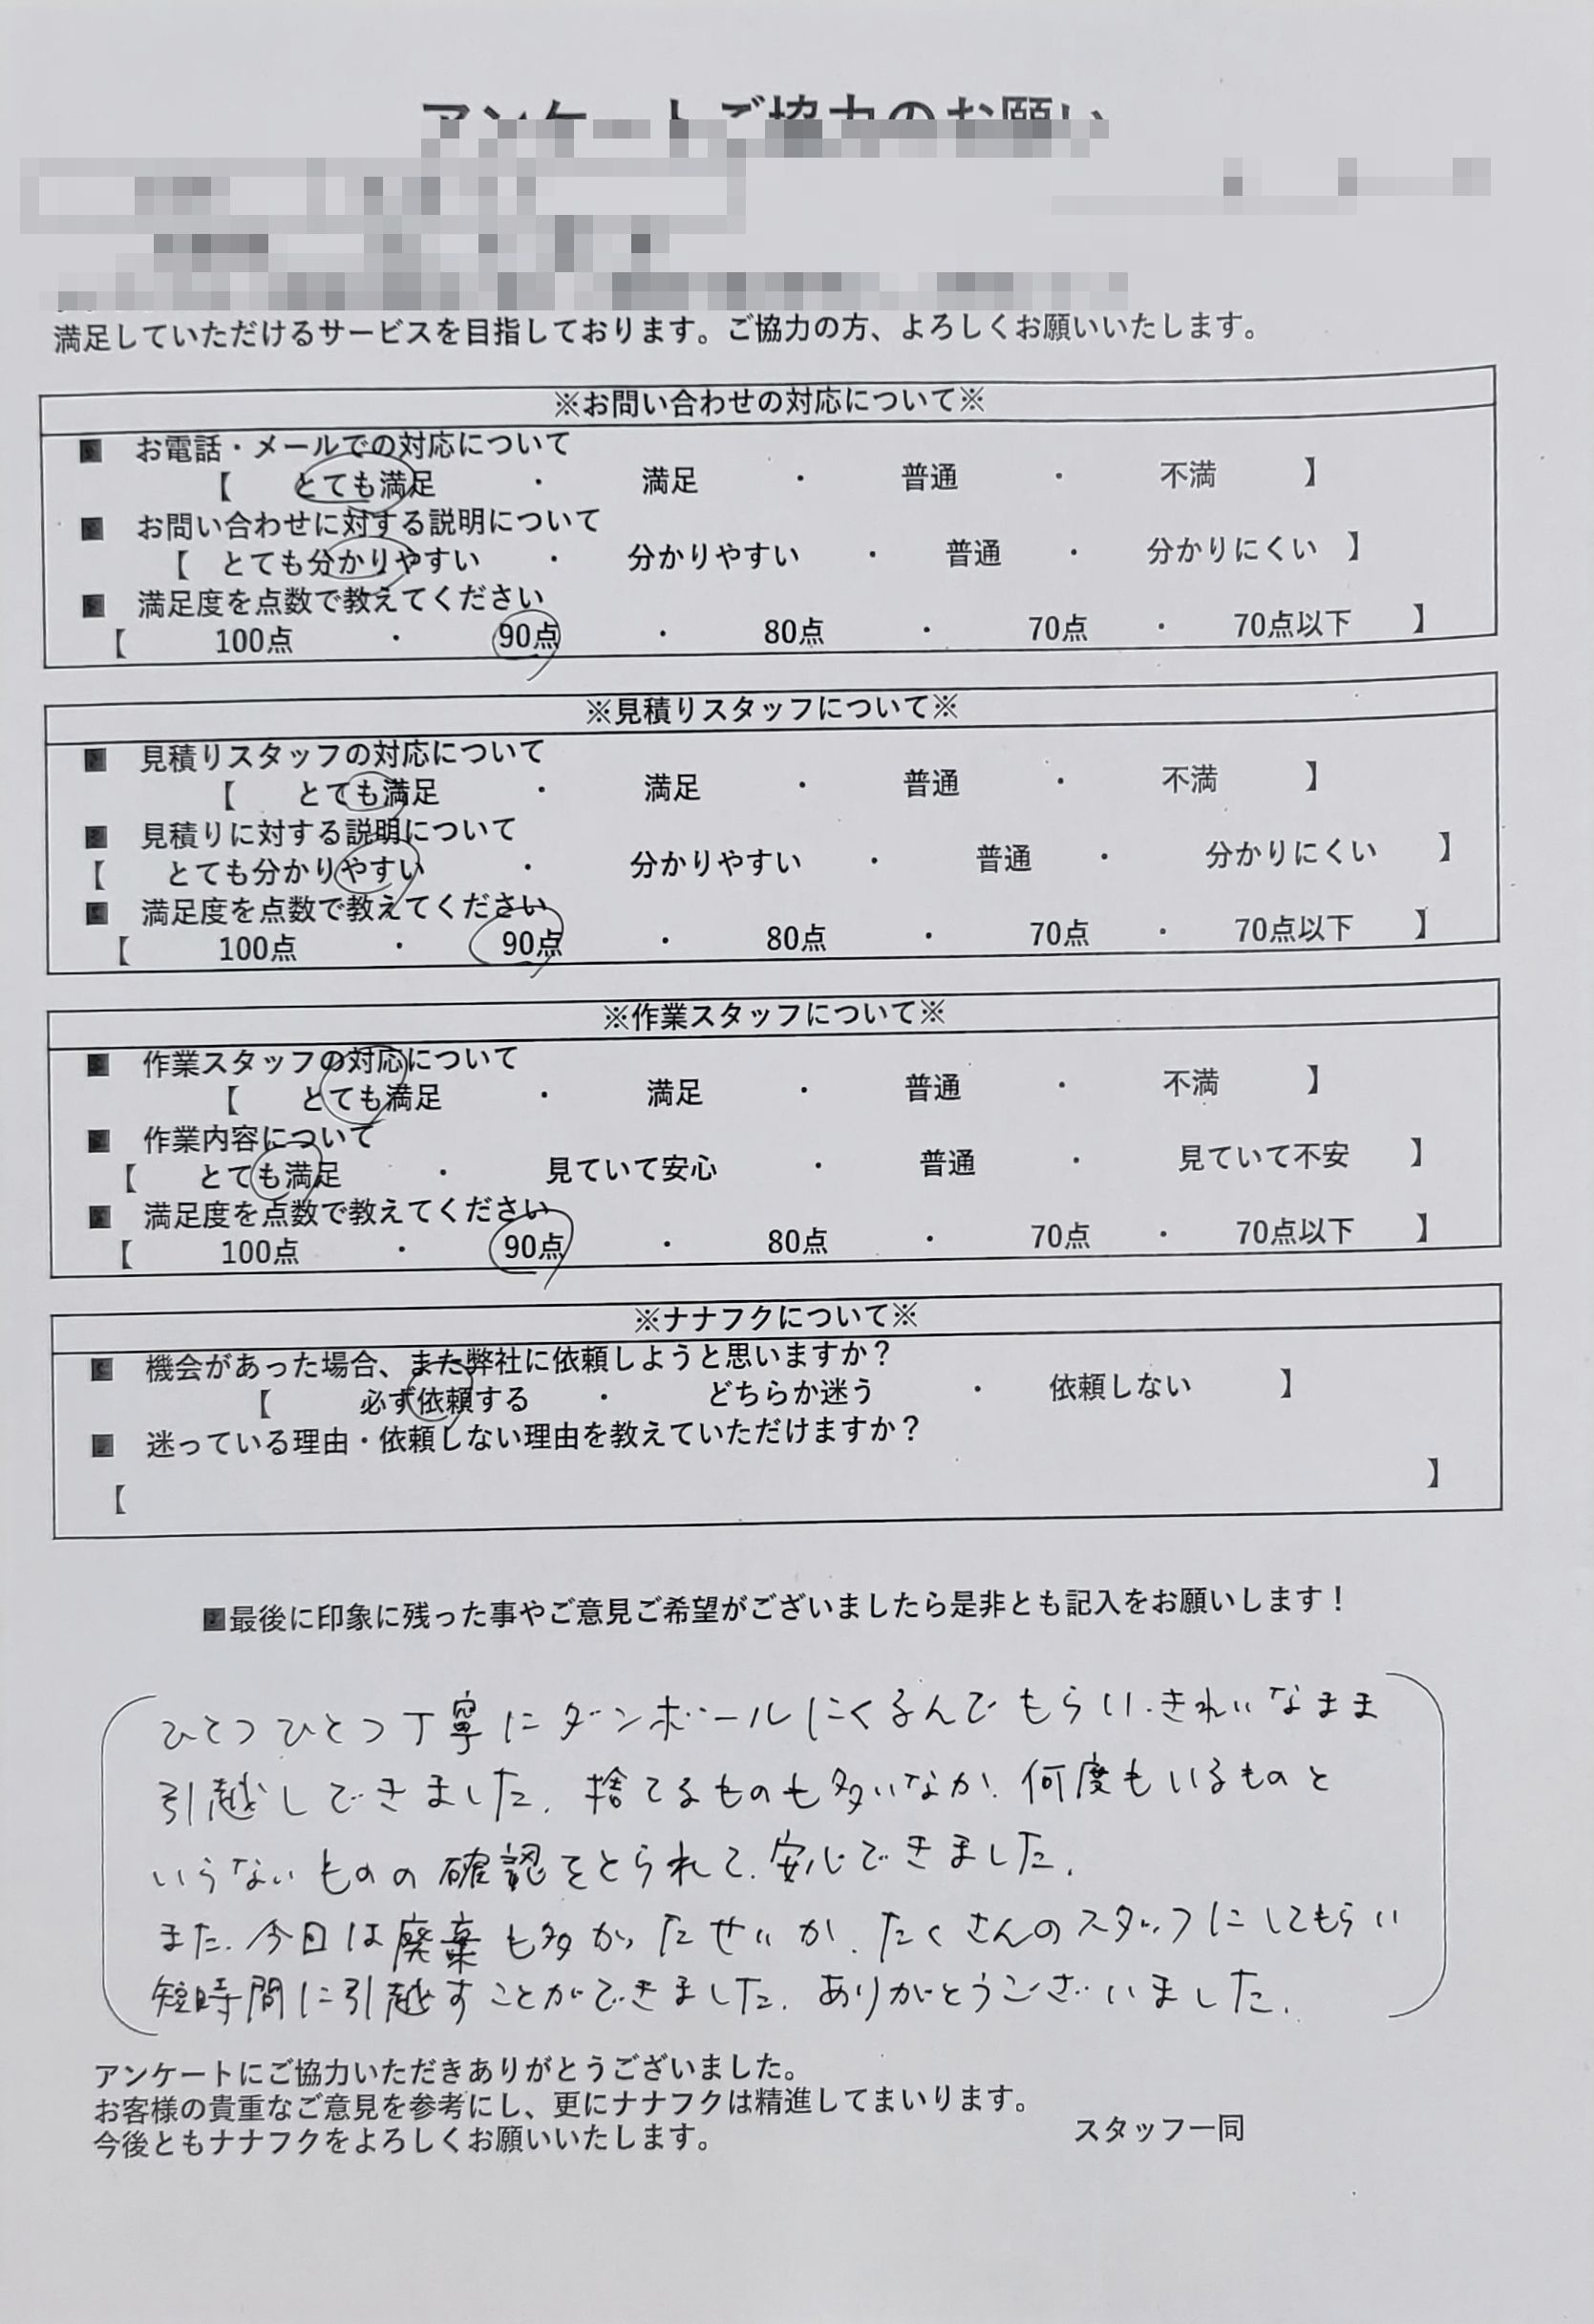 アンケートご協力のお願い
満足していただけるサービスを目指しております。ご協力の方、よろしくお願いいたします。
※お問い合わせの対応について※
■ お電話・メールでの対応について
【 とても満足 ・ 満足 ・ 普通 ・ 不満 】
■ お問い合わせに対する説明について
【 とても分かりやすい ・ 分かりやすい ・ 普通 ・ 分かりにくい 】
■ 満足度を点数で教えてください
【 100点 ・ 90点 ・ 80点 ・ 70点 ・ 70点以下 】
※見積りスタッフについて※
■ 見積りスタッフの対応について
【 とても満足 ・ 満足 ・ 普通 ・ 不満 】
■ 見積りに対する説明について
【 とても分かりやすい ・ 分かりやすい ・ 普通 ・ 分かりにくい 】
■ 満足度を点数で教えてください
【 100点 ・ 90点 ・ 80点 ・ 70点 ・ 70点以下 】
※作業スタッフについて※
■ 作業スタッフの対応について
【 とても満足 ・ 満足 ・ 普通 ・ 不満 】
■ 作業内容について
【 とても満足 ・ 見ていて安心 ・ 普通 ・ 見ていて不安 】
■ 満足度を点数で教えてください
【 100点 ・ 90点 ・ 80点 ・ 70点 ・ 70点以下 】
※ナナフクについて※
■ 機会があった場合、また弊社に依頼しようと思いますか？
【 必ず依頼する ・ どちらか迷う ・ 依頼しない 】
■ 迷っている理由・依頼しない理由を教えていただけますか？
【 】
■最後に印象に残った事やご意見ご希望がございましたら是非とも記入をお願いします！
ひとつひとつ丁寧にダンボールにくるんでもらい、きれいなまま
引越しできました。捨てるものも多いなか、何度もいるものと
いらないものの確認をとられて、安心できました。
また、今日は廃棄も多かったせいか、たくさんのスタッフにしてもらい
短時間に引越すことができました。ありがとうございました。
アンケートにご協力いただきありがとうございました。
お客様の貴重なご意見を参考にし、更にナナフクは精進してまいります。
今後ともナナフクをよろしくお願いいたします。
スタッフ一同